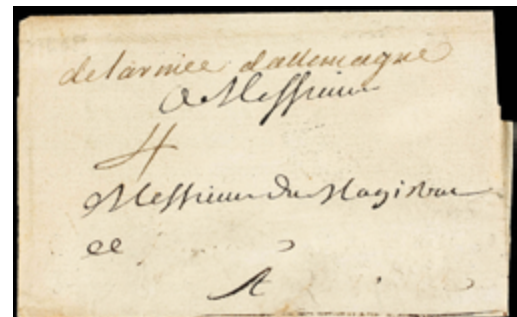 de larmée dallemagne
A Messieurs
4
Messieurs du Magistrat
A